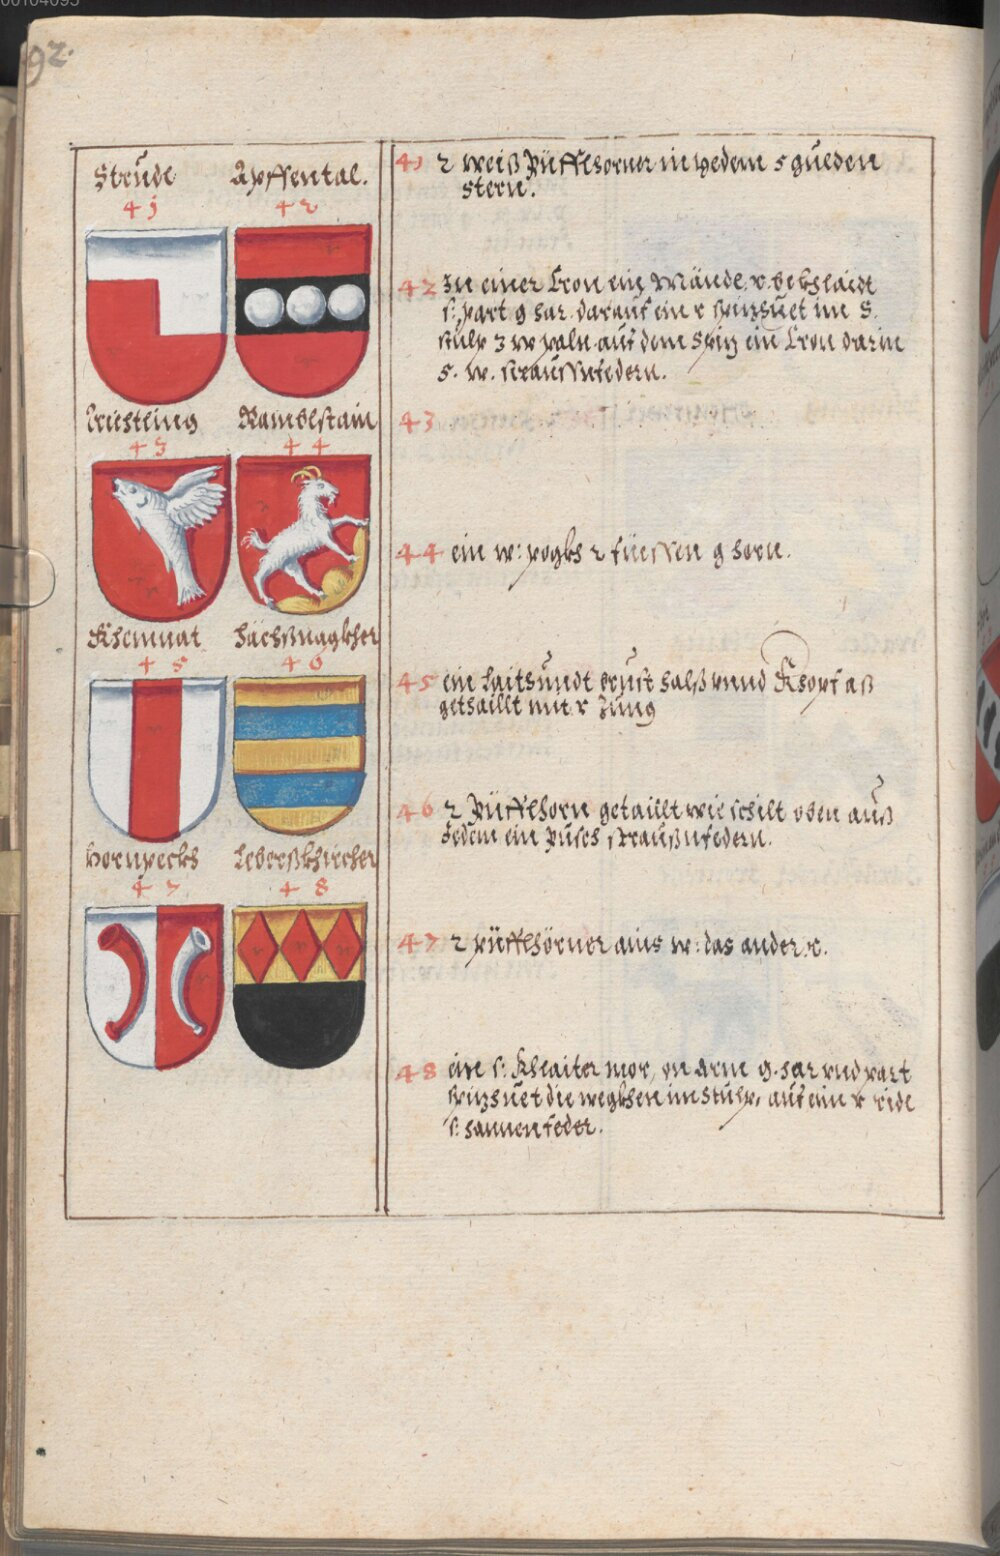 92.
Streude Apffental.
41 42
43 44
Ramblstain
45 46
Khemnat
47 48
Hornpeckh Leberßkhircher
41 2 weiß Püfflhorner in yedem 5 gulden
stern.
42 In einer Cron ein Mändl, r. bekhlaidt
s. part g har darauf ein r spizhuet im S.
stulp 3 w paln auf dem Spiz ein Cron darin
5. w. straussnfedern.
43
44 ein w: pogkh 2 füessen g horn.
45 ein laithundt prust halß vnnd Khopf
gethaillt mit r Zung
46 2 Püfflhorn getaillt wie schilt oben auß
Jedem ein pusch straußnfedern.
47 2 püfflhörner ains w: das ander. r.
48 ein s. Khlaiter mor, on Arm g. har vnd part
spizhuet die wegkhen im Stulp, auf ein r
s. hannenfeder.